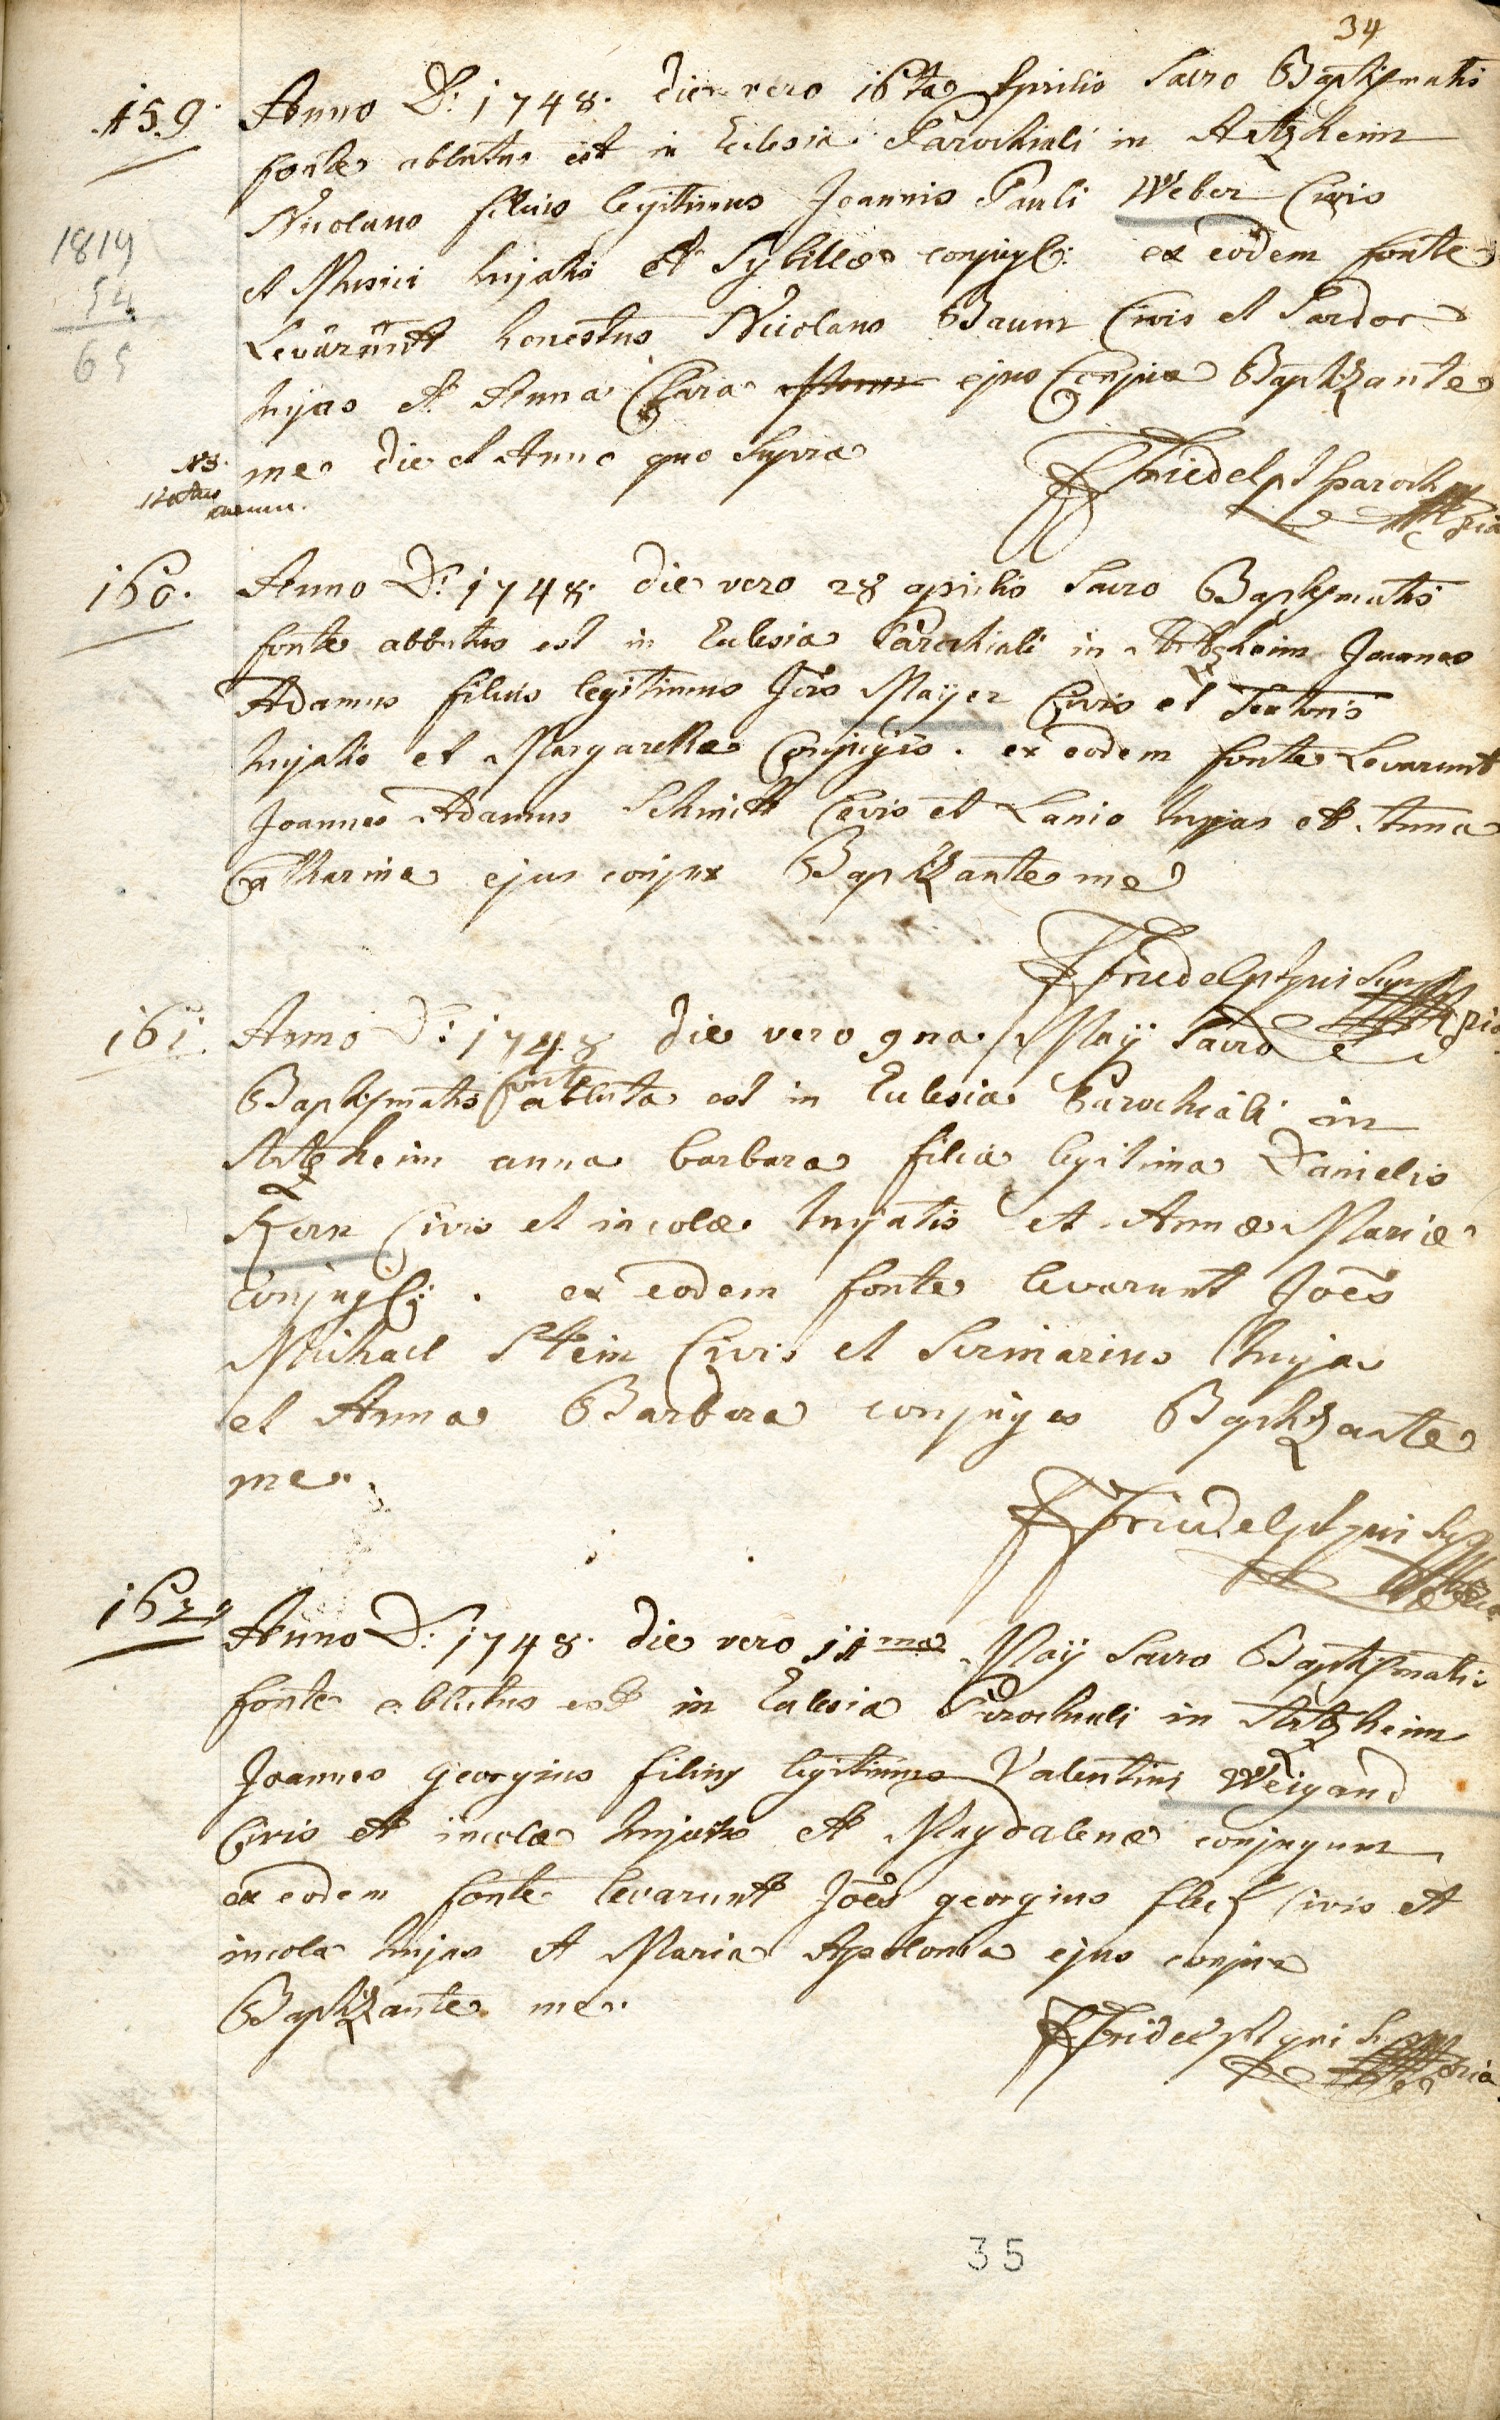 34
159. Anno D: 1748. die vero 16ta Aprilis Sacro Baptismatis
fonte ablutus est in Eclesia Parochiali in Artzheim
Nicolaus filius legitimus Joannis Pauli Weber Civis
1819
et Musici hujatis et Sybillæ conjug: ex eodem fonte
54
Levarunt honestus Nicolaus Baum Civis et Sardor
65
hujas et Anna Clara ejus Conjux Baptizante
me die et Anno quo Supra
NB.
Friedel pt Paroch
160. Anno D: 1748. die vero 28 aprilis Sacro Baptismatis
fonte ablutus est in Eclesia Parochiali in Artzheim Joannes
Adamus filius legitimus Jois Mayer Civis et Sartoris
hujatis et Margarethæ Conjugis. ex eodem fonte Levarunt
Joannes Adamus Schmitt Civis et Lanio hujas et Anna
Catharina ejus conjux Baptizante me
Friedel pt qui Supra
161. Anno D: 1748 die vero 9na Maÿ Sacro
Baptismatis fonte abluta est in Eclesia Parochiali in
Artzheim anna barbara filia legitima Danielis
Kern Civis et incolæ hujatis et Annæ Mariæ
conjug: . ex eodem fonte levarunt Joës
Michael Stein Civis et Scriniarius hujas
et Anna Barbara conjuges Baptizante
me.
Friedel pt qui Supra
162. Anno D: 1748. die vero 11ma Maÿ Sacro Baptismatis
fonte ablutus est in Eclesia Parochiali in Artzheim
Joannes georgius filius legitimus Valentini Weigand
Civis et incolæ hujatis et Magdalenæ conjugum
ex eodem fonte levarunt Joës georgius fleck Civis et
incola hujas et Maria Apolonia ejus conjux
Baptizante me.
Friedel pt qui Supra
35